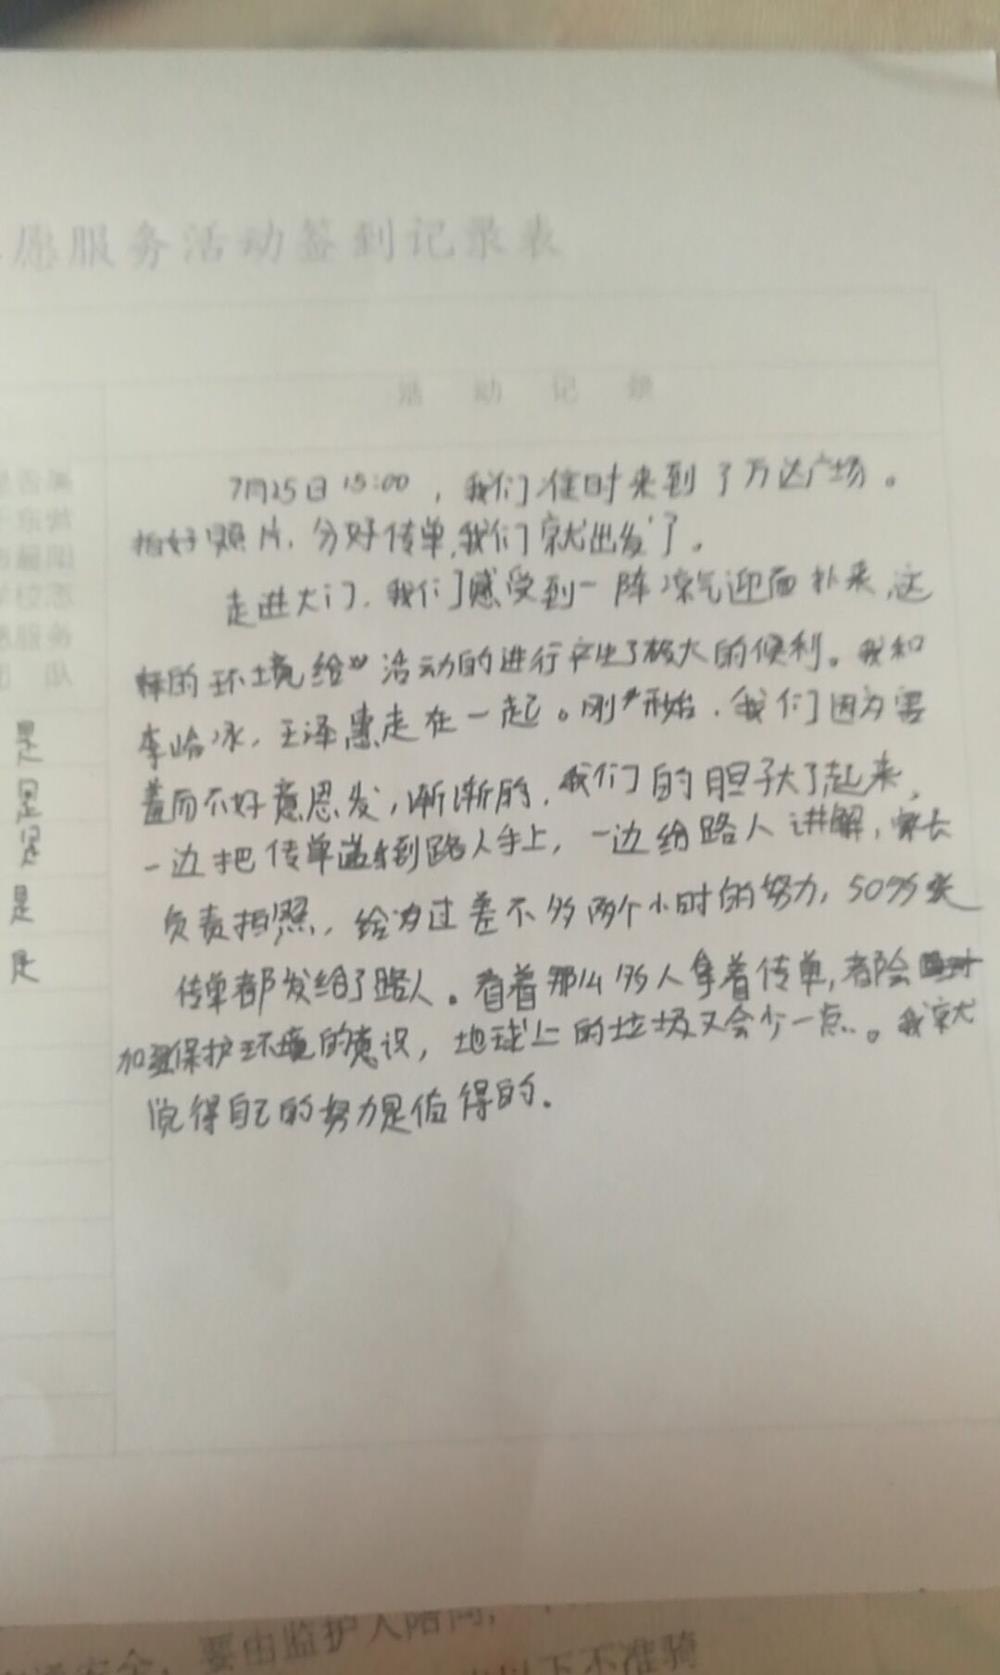 愿服务活动签到记录表
活动记录
7月25日15:00,我们准时来到了万达广场。
拍好照片,分好传单,我们就出发了。
走进大门,我们感受到一阵凉气迎面扑来,这
样的环境给活动的进行产生了极大的便利。我和
李哈冰,王泽惠走在一起。刚开始,我们因为害
羞而不好意思发,渐渐的,我们的胆子大了起来,
一边把传单递到路人手上,一边给路人讲解,家长
负责拍照,经过差不多两个小时的努力,50多张
传单都发给了路人。看着那么多人拿着传单,都会
加强保护环境的意识,地球上的垃圾又会少一点。我就
觉得自己的努力是值得的。
校志
愿服务
团队
是
是
是
是
是
要由监护人陪同,
以下不准骑